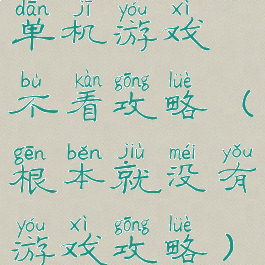 dān jī yóu xì
单机游戏
bù kàn gōng lüè
不看攻略（
gēn běn jiù méi yǒu
根本就没有
yóu xì gōng lüè
游戏攻略）